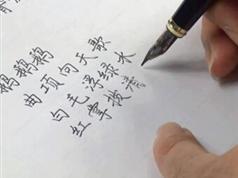 鹅鹅鹅
曲项向天歌
白毛浮绿水
红掌拨清